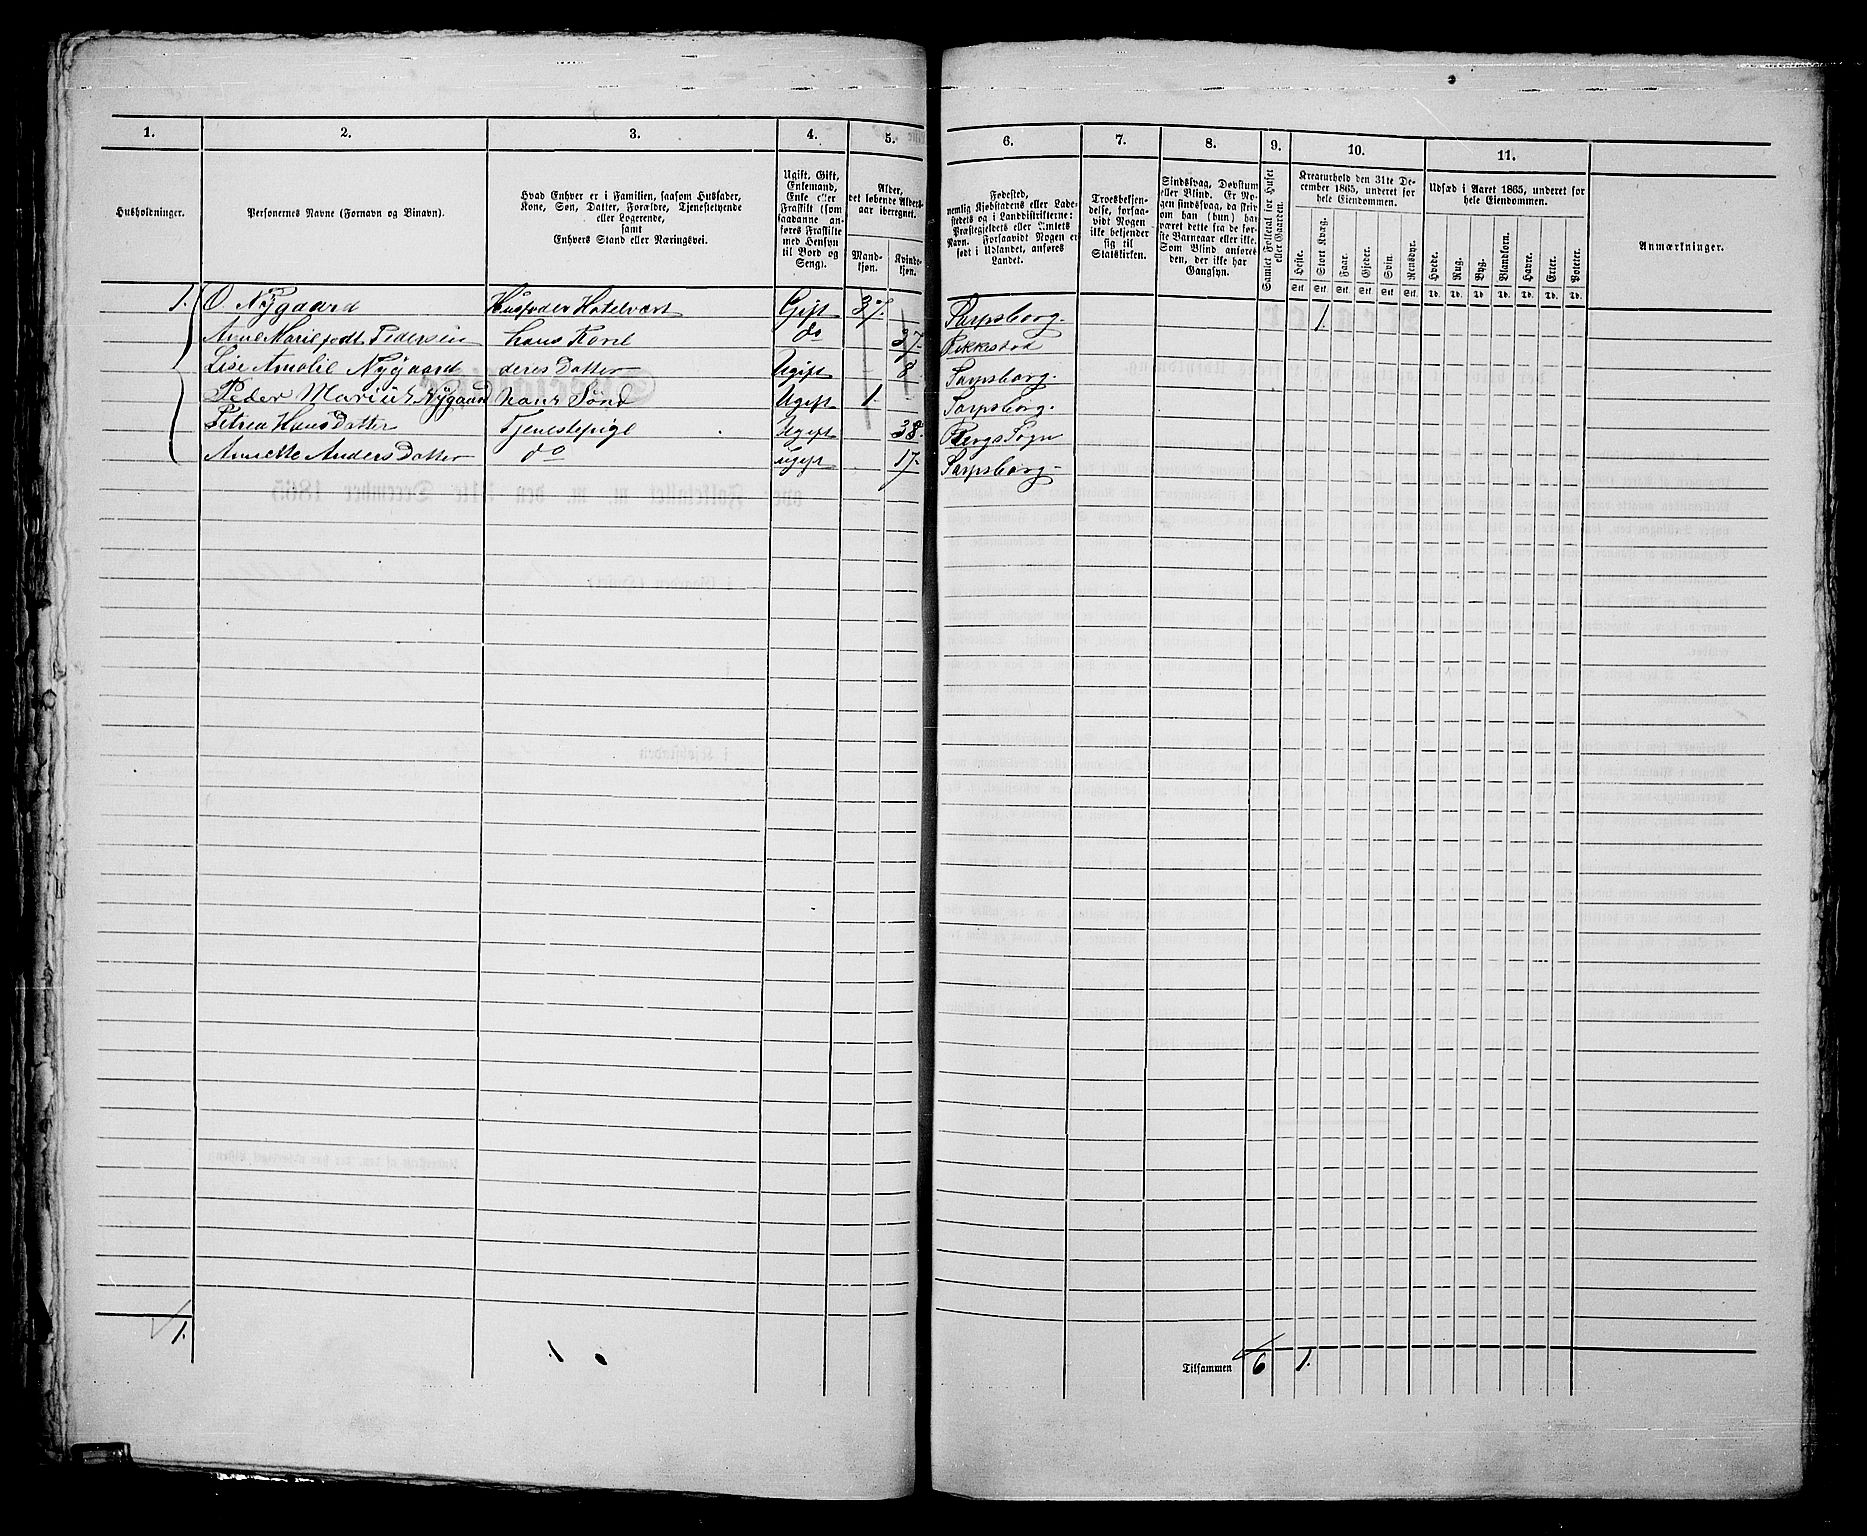 1. 2. 3. 4. 5. 6. 7. 8. 9. 10. 11.
Husholdninger.
Personernes Navne (Fornavn og Binavn).
Hvad Enhver er i Familien, saasom Husfader,
Kone, Søn, Datter, Forældre, Tjenestetyende
eller Logerende,
samt
Enhvers Stand eller Næringsvei.
Ugift, Gift,
Enkemand,
Enke eller
Fraskilt (som
saadanne an-
føres Fraskilte
med Hensyn
til Bord og
Seng).
Alder,
det løbende Alders-
aar iberegnet.
Mand-
kjøn.
Kvinde-
kjøn.
Fødested,
nemlig Kjøbstadens eller Lade-
stedets og i Landdistrikterne:
Præstegjeldets eller Amtets
Navn. Forsaavidt Nogen er
født i Udlandet, anføres
Landet.
Troesbekjen-
delse, forsaa-
vidt Nogen
ikke bekjender
sig til
Statskirken.
Sindssvag, Døvstum
eller Blind. Er No-
gen sindssvag, da skriv
om han (hun) har
været dette fra de før-
ste Barneaar eller ikke.
Som Blind anføres
den, der ikke har
Gangsyn.
Samlet Folketal for Huset
eller Gaarden.
Kreaturhold den 31te De-
cember 1865, underet for
hele Eiendommen.
Heste. Stort Kvæg. Faar. Gjeder. Svin. Rensdyr.
Stk. Stk. Stk. Stk. Stk. Stk.
Udsæd i Aaret 1865, underet for
hele Eiendommen.
Hvede. Rug. Byg. Blandkorn. Havre. Erter. Poteter.
Td. Td. Td. Td. Td. Td. Td.
Anmærkninger.
1. O Nygaard Husfader Hotelvært Gift 37 Sarpsborg. 1.
Anne Marie født Pedersen hans Kone do 37
Lise Amalie Nygaard deres Datter Ugift 8. Sarpsborg.
Peder Marius Nygaard hans Sønd Ugift 1 Sarpsborg.
Petrea Hans Datter Tjenestepige Ugift 38. Bergs Sogn
Annette Anders Datter do ugift 17. Sarpsborg
1.
Tilsammen 6 1.